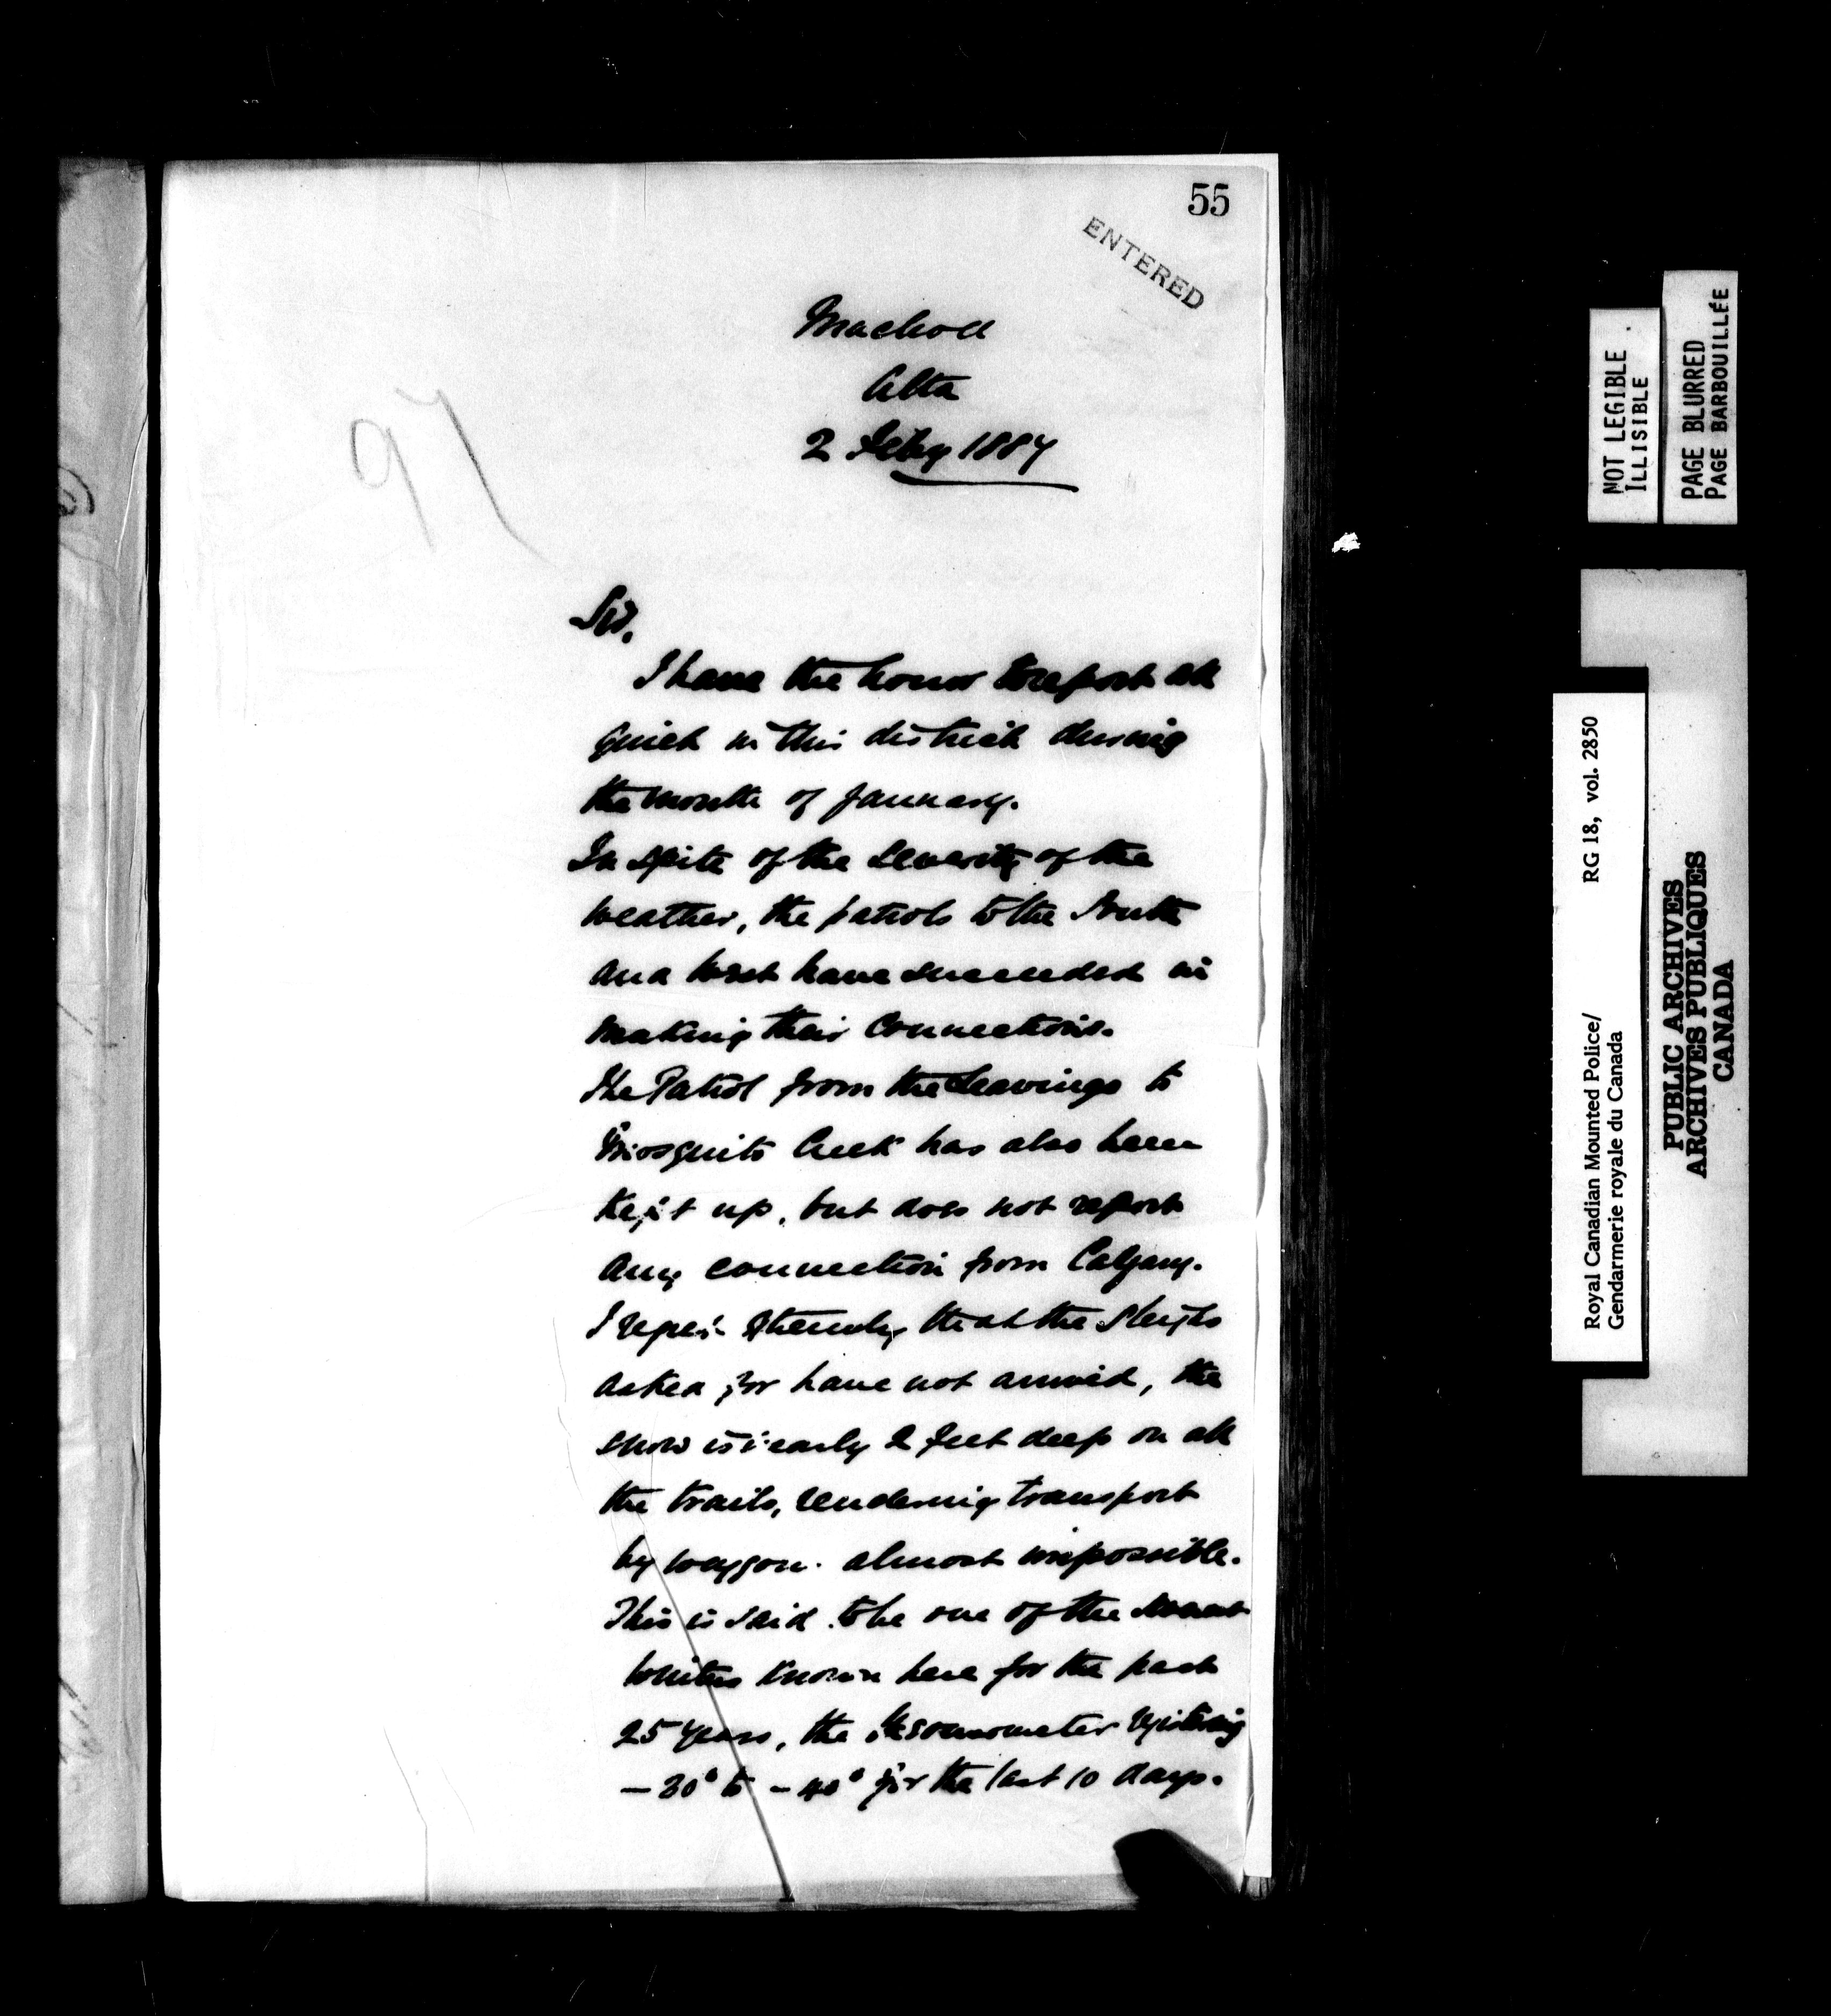 55
ENTERED
97
Macleod
Alta
2 Feby 1887
Sir,
I have the honor to report all
quiet in this district during
the month of January.
In spite of the severity of the
weather, the patrols to the South
and West have succeeded in
making their connections.
The Patrol from the Leavings to
Mosquito Creek has also been
kept up, but does not report
any connection from Calgary.
I regret extremely that the sleighs
asked for have not arrived, the
snow is nearly 2 feet deep on all
the trails, rendering transport
by waggon almost impossible.
This is said to be one of the
Winters known here for the past
25 years, the thermometer registering
- 30° to - 40° for the last 10 days.
NOT LEGIBLE
ILLISIBLE
PAGE BLURRED
PAGE BARBOUILLÉE
Royal Canadian Mounted Police/
Gendarmerie royale du Canada
RG 18, vol. 2850
PUBLIC ARCHIVES
ARCHIVES PUBLIQUES
CANADA